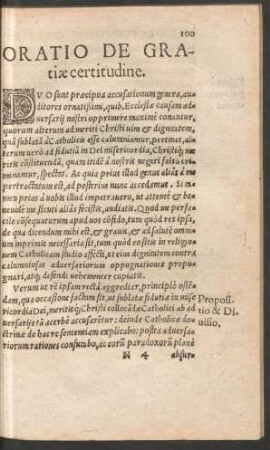 100
ORATIO DE GRA-
tiæ certitudine.
DVO sunt præcipua accusationum genera, au-
ditores ornatissimi, quib. Ecclesiæ causam ad
uersarij nostri opprimere maximè conantur,
quorum alterum ad meriti Christi uim & dignitatem,
quã sublatã à Catholicis esse calumniantur, pertinet, al-
terum uerò ad fiduciã in Dei misericordia, Christiq; me
ritis cõstituendã, quam itidẽ à nostris negari falsò
criminantur, spectat. Ac quia prius illud genus aliàs
pertractatum est, ad posterius nunc accedamus. Si
men prius à uobis illud impetrauero, ut attentè & be
neuolè me, sicuti aliàs fecistis, audiatis. Quod me
cõsequuturum apud uos cõfido, tum quòd res ipsa,
de qua dicendum mihi est, & grauis, & ad salutẽ omni
um inprimis necessaria sit, tum quòd eo sitis in religio
nem Catholicam studio affecti, ut eius dignitatem contra
calumniosas aduersariorum oppugnationes propu-
gnari, atq; defendi uehementer cupiatis.
Verum ut rẽ ipsam rectà aggrediar, principiò ostẽ
dam, qua occasione factum sit, ut sublatæ fiduciæ in mise
ricordia Dei, meritisq́; Christi collocãdæ Catholici ab ad
uersarijs tã acerbè accusarẽtur: deinde Catholicæ do-
ctrinæ de hac re sententiam explicabo: postea aduersa-
riorum rationes confutabo, ac eorũ paradoxorũ planè
Proposi-
tio & Di-
uisio.
N 4 absur-